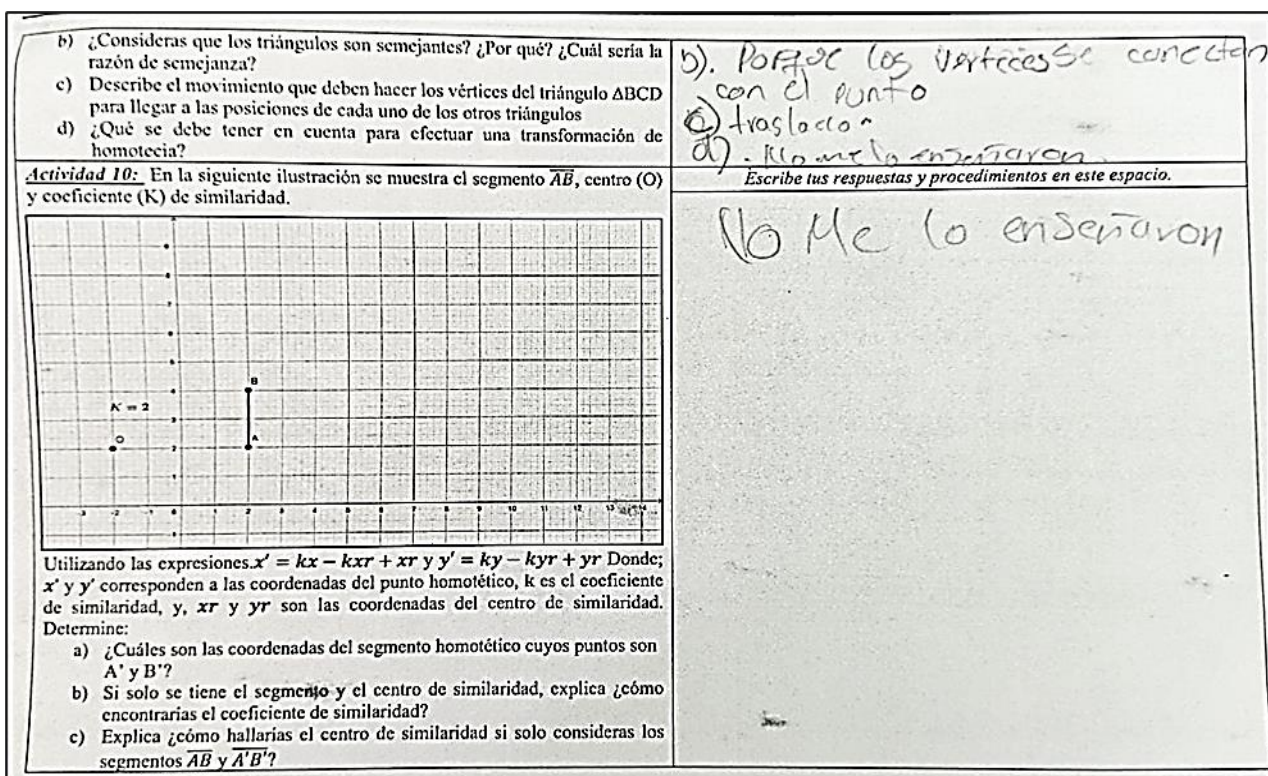 b) ¿Consideras que los triángulos son semejantes? ¿Por qué? ¿Cuál sería la
razón de semejanza?
c) Describe el movimiento que deben hacer los vértices del triángulo ΔBCD
para llegar a las posiciones de cada uno de los otros triángulos
d) ¿Qué se debe tener en cuenta para efectuar una transformación de
homotecia?
b). Porque los vertices se conectan
con el punto
c) traslacion
d). No me lo enseñaron
Actividad 10: En la siguiente ilustración se muestra el segmento AB, centro (O)
y coeficiente (K) de similaridad.
Escribe tus respuestas y procedimientos en este espacio.
No Me lo enseñaron
B
K = 2
O
A
Utilizando las expresiones.x' = kx − kxr + xr y y' = ky − kyr + yr Donde;
x' y y' corresponden a las coordenadas del punto homotético, k es el coeficiente
de similaridad, y, xr y yr son las coordenadas del centro de similaridad.
Determine:
a) ¿Cuáles son las coordenadas del segmento homotético cuyos puntos son
A' y B'?
b) Si solo se tiene el segmento y el centro de similaridad, explica ¿cómo
encontrarías el coeficiente de similaridad?
c) Explica ¿cómo hallarías el centro de similaridad si solo consideras los
segmentos AB y A'B'?